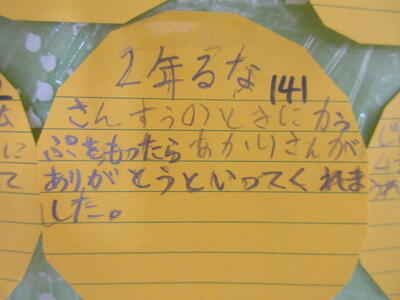 2年るな
141
さんすうのときにかっ
ぷをもったらあかりさんが
ありがとうといってくれま
した。